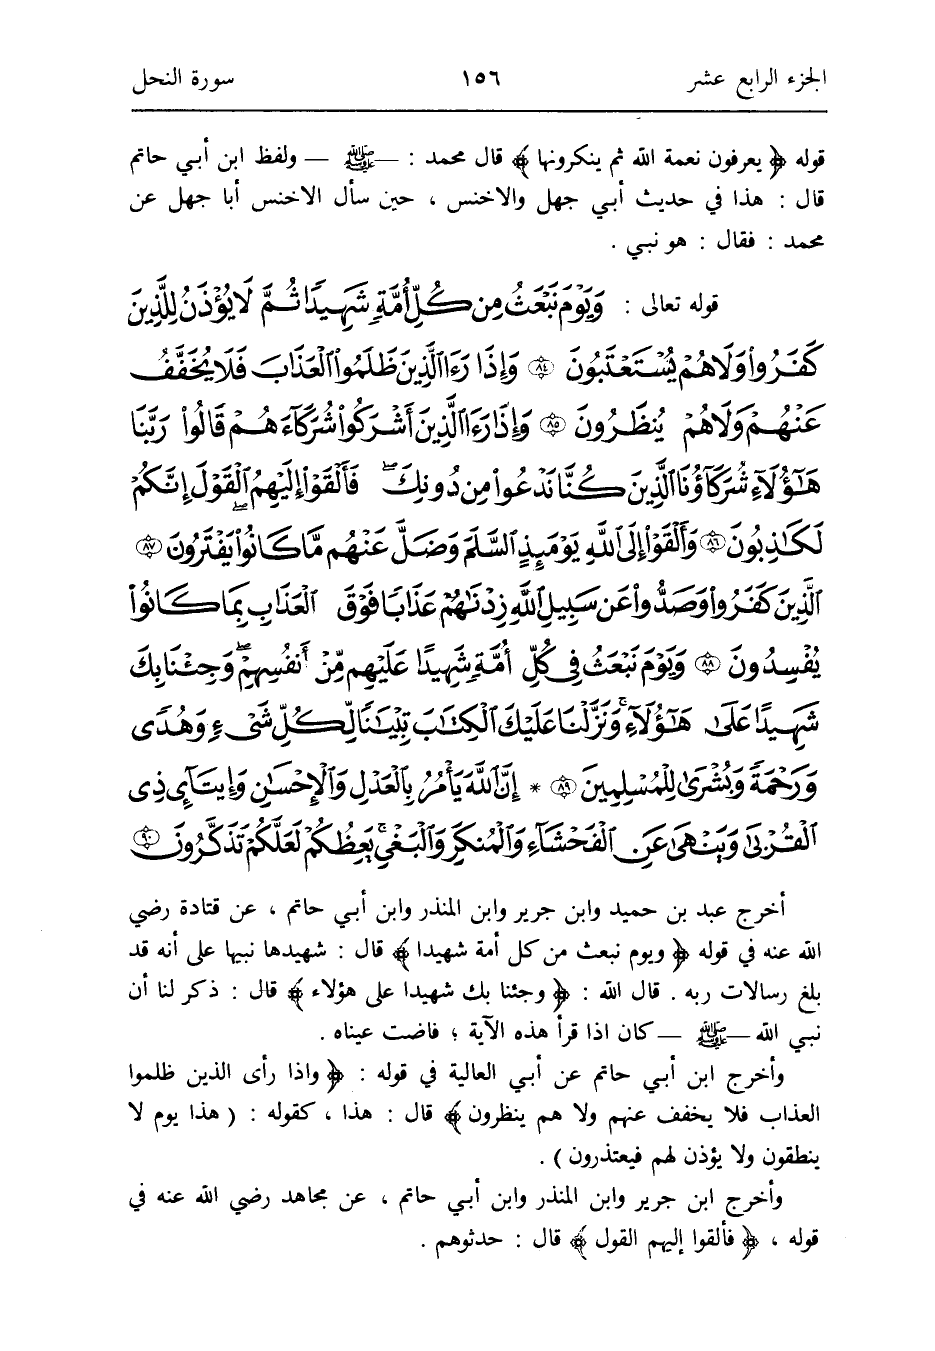 الجزء الرابع عشر ١٥٦ سورة النحل
قوله ﴿ يعرفون نعمة الله ثم ينكرونها ﴾ قال محمد : — ﷺ — ولفظ ابن أبي حاتم
قال : هذا في حديث أبي جهل والاخنس ، حين سأل الاخنس أبا جهل عن
محمد : فقال : هو نبي .
قوله تعالى : وَيَوْمَ نَبْعَثُ مِن كُلِّ أُمَّةٍ شَهِيدًا ثُمَّ لَا يُؤْذَنُ لِلَّذِينَ
كَفَرُوا۟ وَلَا هُمْ يُسْتَعْتَبُونَ ﴿٨٤﴾ وَإِذَا رَءَا ٱلَّذِينَ ظَلَمُوا۟ ٱلْعَذَابَ فَلَا يُخَفَّفُ
عَنْهُمْ وَلَا هُمْ يُنظَرُونَ ﴿٨٥﴾ وَإِذَا رَءَا ٱلَّذِينَ أَشْرَكُوا۟ شُرَكَآءَهُمْ قَالُوا۟ رَبَّنَا
هَـٰٓؤُلَآءِ شُرَكَآؤُنَا ٱلَّذِينَ كُنَّا نَدْعُوا۟ مِن دُونِكَ ۖ فَأَلْقَوْا۟ إِلَيْهِمُ ٱلْقَوْلَ إِنَّكُمْ
لَكَـٰذِبُونَ ﴿٨٦﴾ وَأَلْقَوْا۟ إِلَى ٱللَّهِ يَوْمَئِذٍ ٱلسَّلَمَ ۖ وَضَلَّ عَنْهُم مَّا كَانُوا۟ يَفْتَرُونَ ﴿٨٧﴾
ٱلَّذِينَ كَفَرُوا۟ وَصَدُّوا۟ عَن سَبِيلِ ٱللَّهِ زِدْنَـٰهُمْ عَذَابًا فَوْقَ ٱلْعَذَابِ بِمَا كَانُوا۟
يُفْسِدُونَ ﴿٨٨﴾ وَيَوْمَ نَبْعَثُ فِى كُلِّ أُمَّةٍ شَهِيدًا عَلَيْهِم مِّنْ أَنفُسِهِمْ ۖ وَجِئْنَا بِكَ
شَهِيدًا عَلَىٰ هَـٰٓؤُلَآءِ ۚ وَنَزَّلْنَا عَلَيْكَ ٱلْكِتَـٰبَ تِبْيَـٰنًا لِّكُلِّ شَىْءٍ وَهُدًى
وَرَحْمَةً وَبُشْرَىٰ لِلْمُسْلِمِينَ ﴿٨٩﴾ * إِنَّ ٱللَّهَ يَأْمُرُ بِٱلْعَدْلِ وَٱلْإِحْسَـٰنِ وَإِيتَآئِ ذِى
ٱلْقُرْبَىٰ وَيَنْهَىٰ عَنِ ٱلْفَحْشَآءِ وَٱلْمُنكَرِ وَٱلْبَغْىِ ۚ يَعِظُكُمْ لَعَلَّكُمْ تَذَكَّرُونَ ﴿٩٠﴾
أخرج عبد بن حميد وابن جرير وابن المنذر وابن أبي حاتم ، عن قتادة رضي
الله عنه في قوله ﴿ ويوم نبعث من كل أمة شهيدا ﴾ قال : شهيدها نبيها على أنه قد
بلغ رسالات ربه . قال الله : ﴿ وجئنا بك شهيدا على هؤلاء ﴾ قال : ذكر لنا أن
نبي الله — ﷺ — كان اذا قرأ هذه الآية ؛ فاضت عيناه .
وأخرج ابن أبي حاتم عن أبي العالية في قوله : ﴿ واذا رأى الذين ظلموا
العذاب فلا يخفف عنهم ولا هم ينظرون ﴾ قال : هذا ، كقوله : ( هذا يوم لا
ينطقون ولا يؤذن لهم فيعتذرون ) .
وأخرج ابن جرير وابن المنذر وابن أبي حاتم ، عن مجاهد رضي الله عنه في
قوله ، ﴿ فألقوا إليهم القول ﴾ قال : حدثوهم .